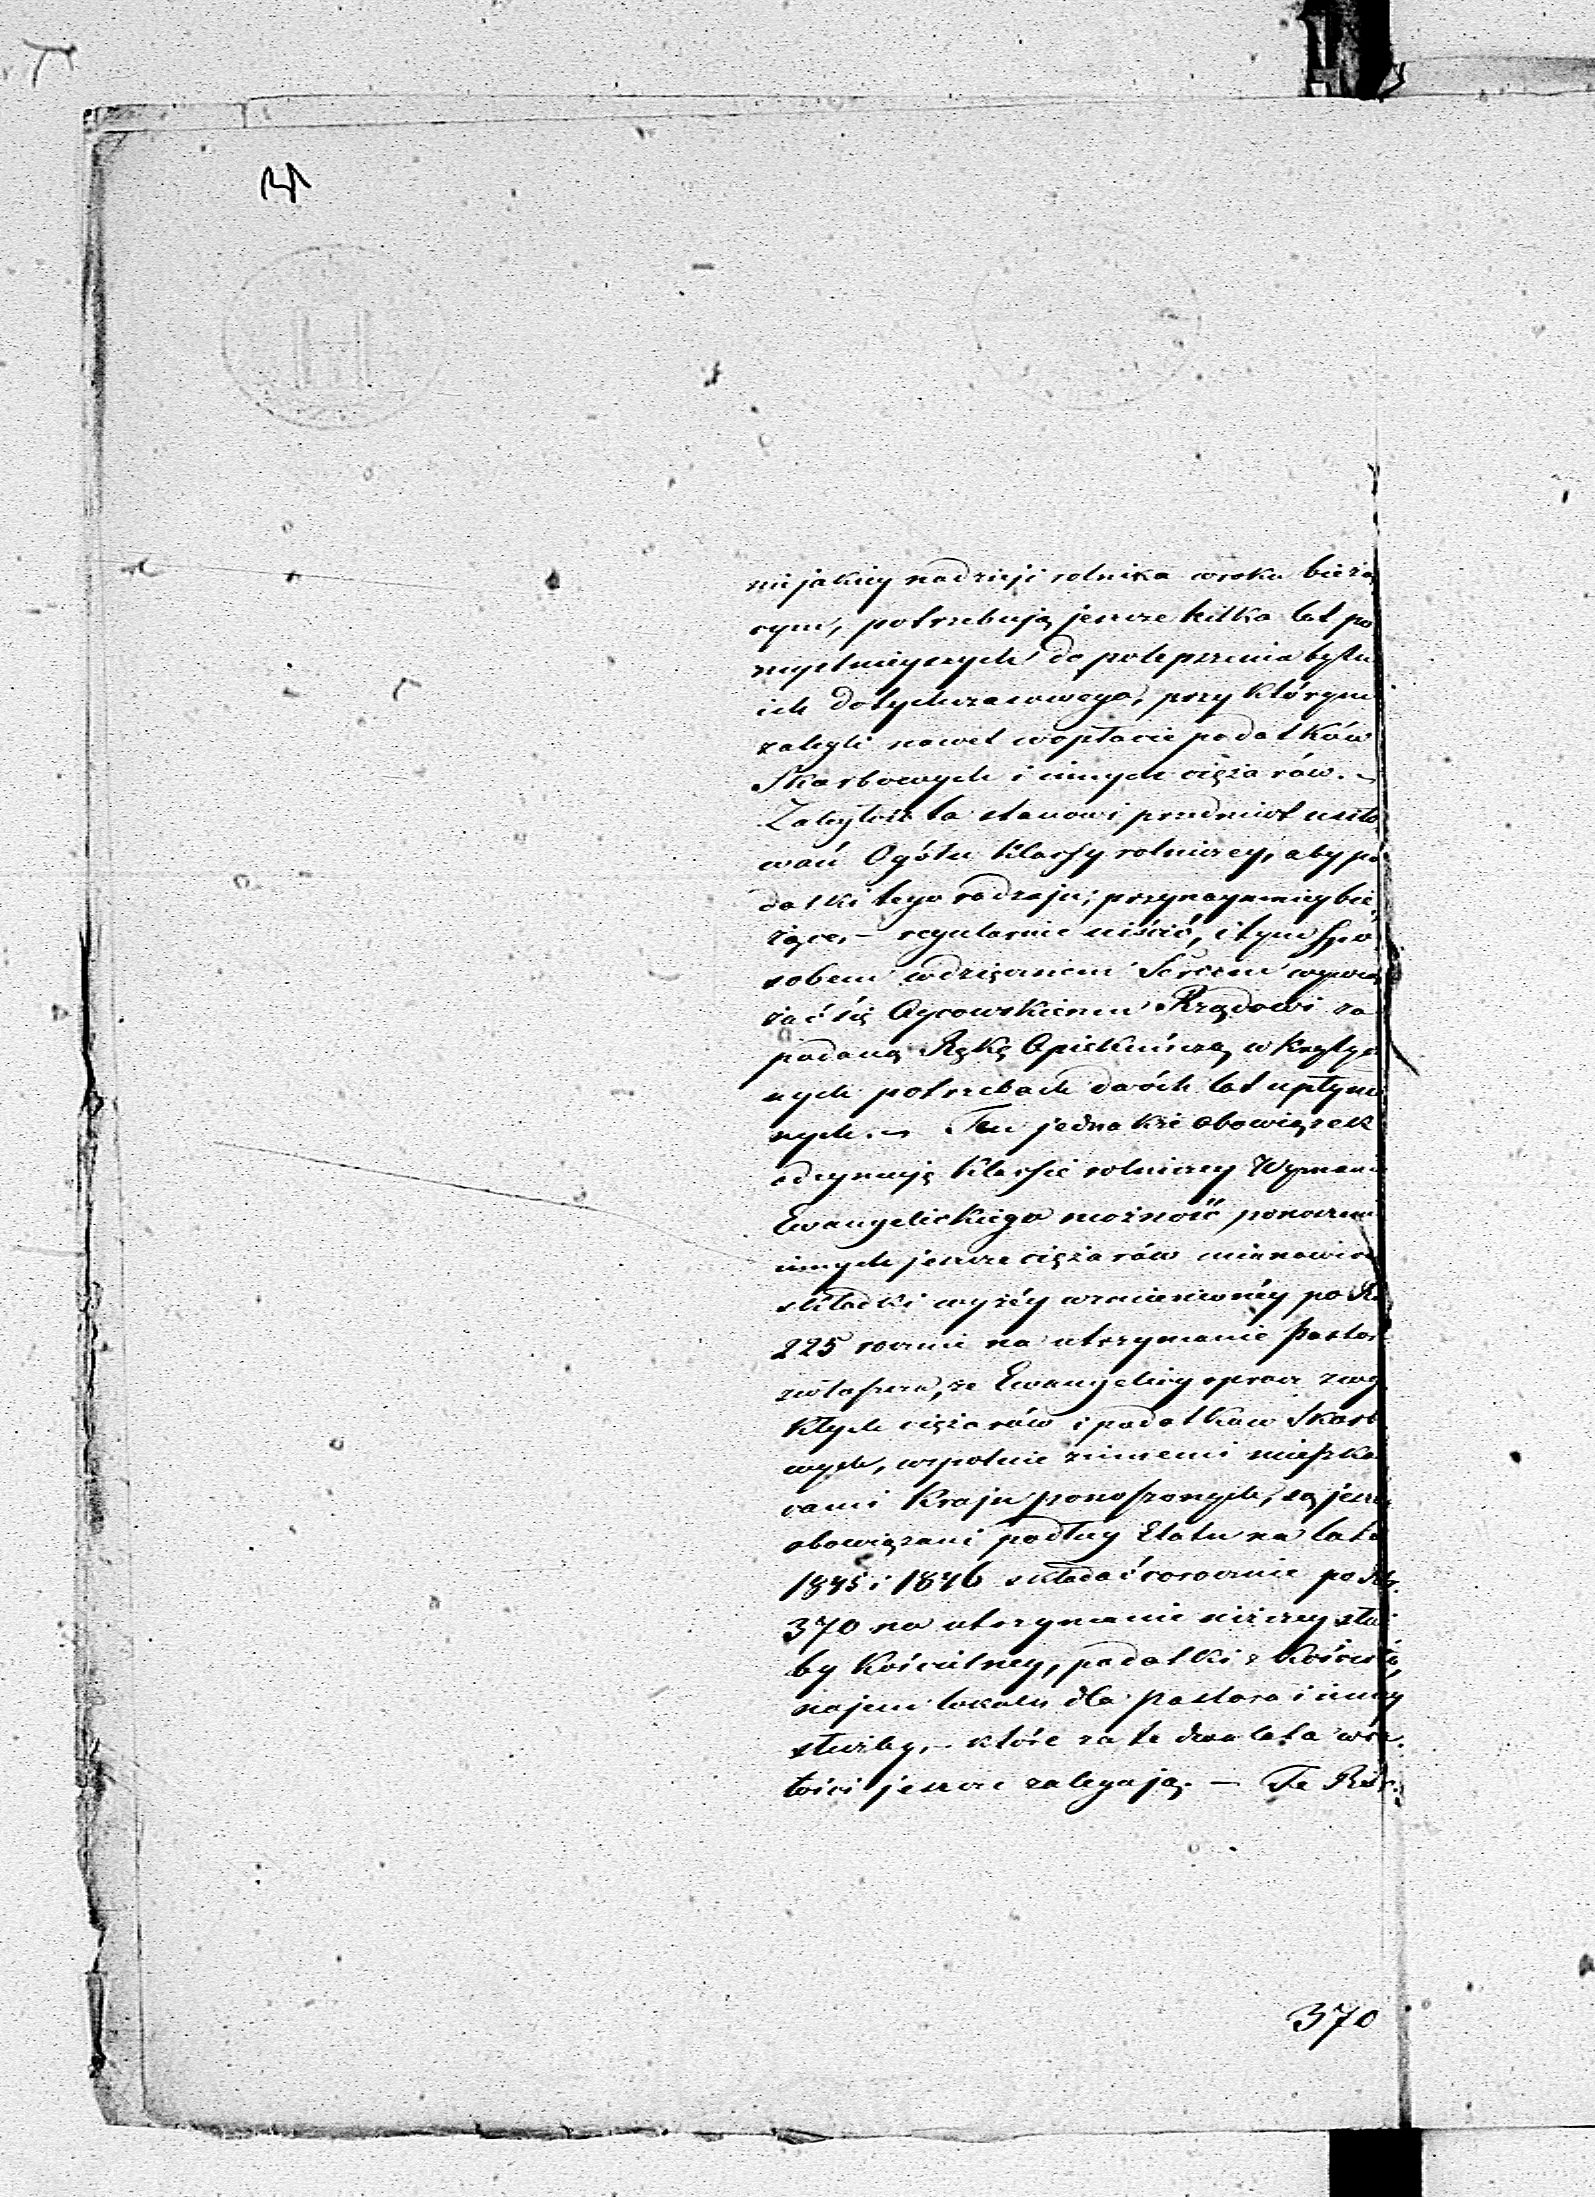 nijakiey nadzieji rolnika w roku bieżą
cym, potrzebują jeszcze kilka lat po
myślnieyszych do polepszenia bytu
ich dotychczasowego, przy którym
zalegli nawet w opłacie podatków
Skarbowych i innych ciężarów. –
Zaległość ta stanowi przedmiot usiło
wań Ogółu Klassy rolniczey, aby po
datki tego rodzaju, przynaymniey bie,
żące, – regularnie uiścić, i tym spo
sobem wdzięcznem Sercem wywią
zać się Oycowskiemu Rządowi za
podaną Rękę Opiekuńczą w krytycz
nych potrzebach dwóch lat upłynio
nych. – Ten jednakże obowiązek
odeymuję Klassie rolniczey Wyznania
Ewangelickiego możność ponoszenia
innych jeszcze ciężarów mianowicie
składki wyżéy wzmienionéy po Rs
225 rocznie na utrzymanie Pastor
zwłaszcza, że Ewangelicy oprócz zwy
kłych ciężarów i podatkow Skarbo
wych, wspolnie z innemi mieszkań
cami Kraju ponoszonych, są jeszcze
obowiązani podług Etatu na lata
1845 i 1846 składać corocznie po Rs.
370 na utrzymanie niższey służ
by Kościelney, podatki z Kościoła,
najem lokalu dla pastora i inney
służby, – które za te dwa lata w ca.
łości jeszcze zalegają. – Te Rsr.
370